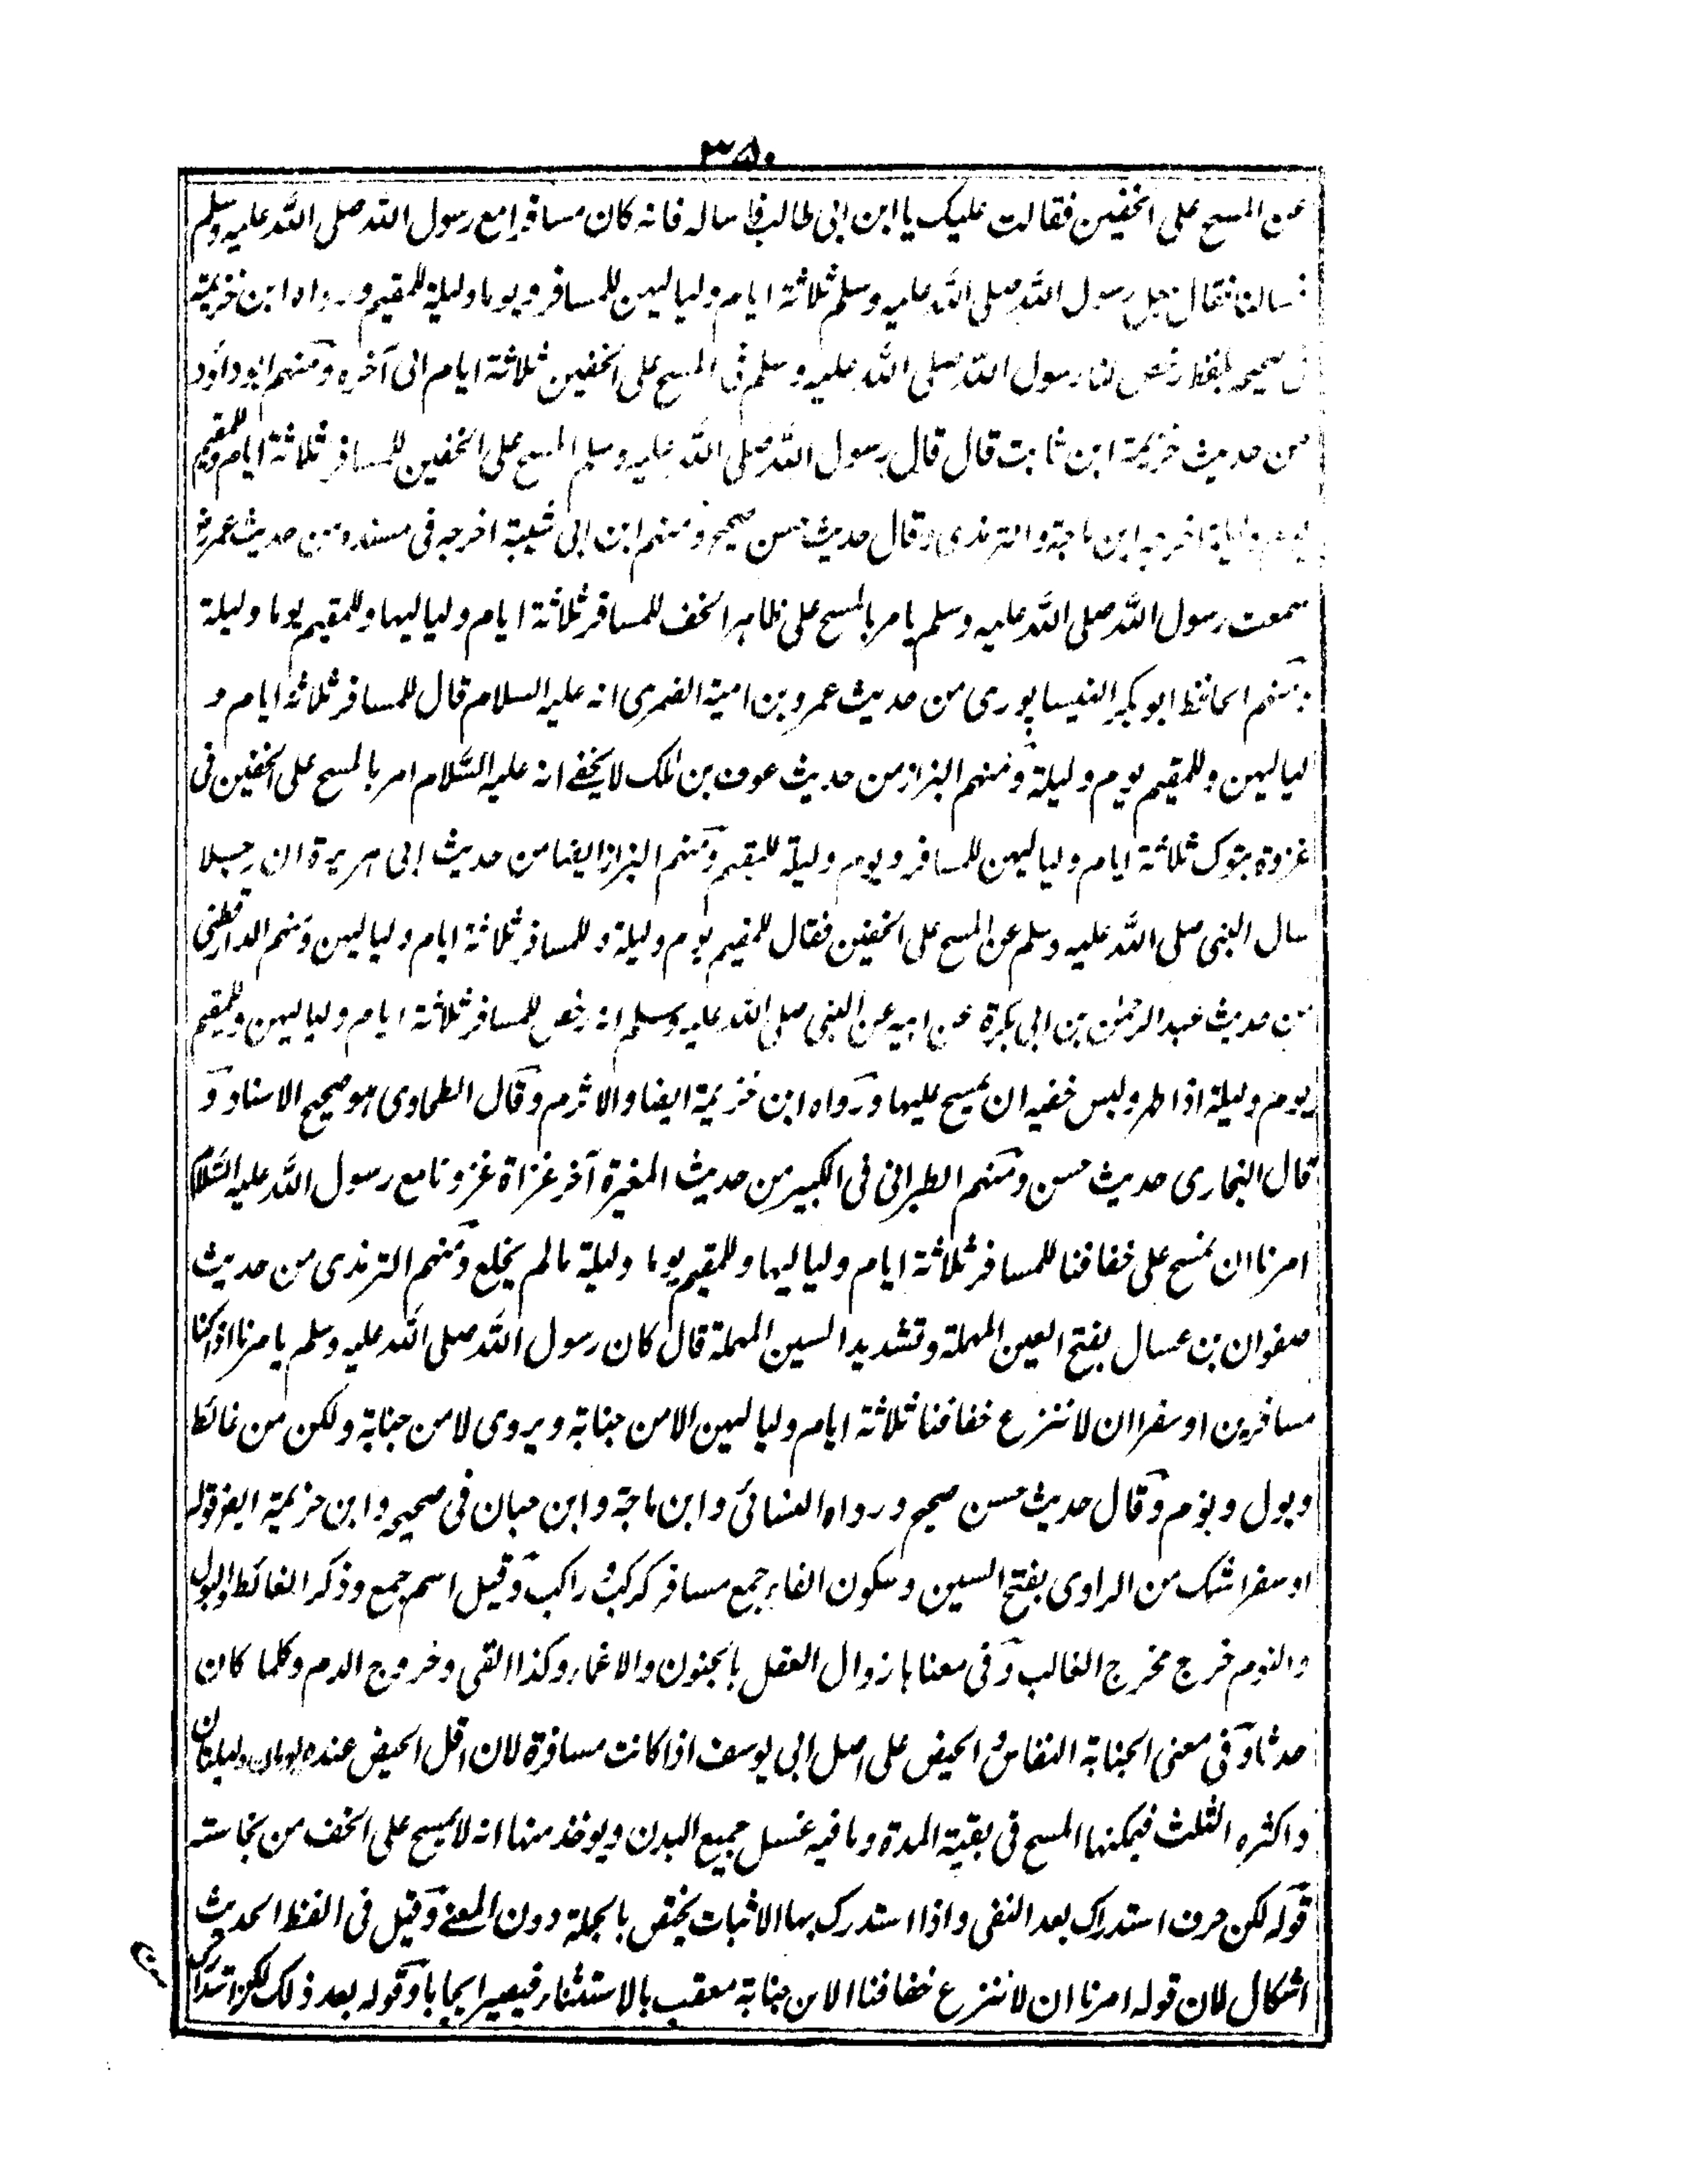 ۳۵۰
عن المسح على الخفين فقالت عليك يا ابن ابى طالب فاساله فانه كان مسافرا مع رسول الله صلى الله عليه وسلم
فسالن فقال جعل رسول الله صلى الله عليه وسلم ثلاثة ايام ولياليهن للمسافر ويوما وليلة للمقيم ورواه ابن خزيمة
فى صحيحه بلفظ رخص لنا رسول الله صلى الله عليه وسلم فى المسح على الخفين ثلاثة ايام الى آخره ومنهم ابو داؤد
من حديث خزيمة ابن ثابت قال قال رسول الله صلى الله عليه وسلم المسح على الخفين للمسافر ثلاثة ايام وللمقيم
يوم وليلة اخرجه ابن ماجة والترمذى وقال حديث حسن صحيح ومنهم ابن ابى شيبة اخرجه فى مسنده من حديث عمر رض
سمعت رسول الله صلى الله عليه وسلم يامر بالمسح على ظاهر الخف للمسافر ثلاثة ايام ولياليها وللمقيم يوما وليلة
ومنهم الحافظ ابو بكر النيسابورى من حديث عمرو بن امية الضمرى انه عليه السلام قال للمسافر ثلاثة ايام و
لياليهن وللمقيم يوم وليلة ومنهم البزاز من حديث عوف بن ملك لا يخفى انه عليه السلام امر بالمسح على الخفين فى
غزوة تبوك ثلاثة ايام ولياليهن للمسافر ويوم وليلة للمقيم ومنهم البزاز ايضا من حديث ابى هريرة ان رجلا
سال النبى صلى الله عليه وسلم عن المسح على الخفين فقال للمقيم يوم وليلة وللمسافر ثلاثة ايام ولياليهن ومنهم الدارقطنى
من حديث عبد الرحمن بن ابى بكرة عن ابيه عن النبى صلى الله عليه وسلم انه رخص للمسافر ثلاثة ايام ولياليهن وللمقيم
يوم وليلة اذا طهر ولبس خفيه ان يمسح عليها ورواه ابن خزيمة ايضا والاثرم وقال الطحاوى هو صحيح الاسناد و
قال البخارى حديث حسن ومنهم الطبرانى فى الكبير من حديث المغيرة آخر غزاة غزونا مع رسول الله عليه السلام
امرنا ان نمسح على خفافنا للمسافر ثلاثة ايام ولياليها وللمقيم يوما وليلة مالم يخلع ومنهم الترمذى من حديث
صفوان بن عسال بفتح العين المهملة وتشديد السين المهملة قال كان رسول الله صلى الله عليه وسلم يامرنا اذا كنا
مسافرين او سفرا ان لا ننزع خفافنا ثلاثة ايام ولياليهن الا من جنابة ويروى لا من جنابة ولكن من غائط
وبول ونوم وقال حديث حسن صحيح ورواه النسائى وابن ماجة وابن حبان فى صحيحه وابن خزيمة ايضا قوله
او سفرا شك من الراوى بفتح السين وسكون الفاء جمع مسافر كركب وراكب وقيل اسم جمع وذكر الغائط والبول
والنوم خرج مخرج الغالب وفى معناها زوال العقل بالجنون والاغماء وكذا القى وخروج الدم وكلما كان
حدثا وفى معنى الجنابة النفاس والحيض على اصل ابى يوسف اذا كانت مسافرة لان اقل الحيض عنده يومان وليلتان
واكثره الثلث فيمكنها المسح فى بقية المدة وما فيه غسل جميع البدن ويوخذ منها انه لا يمسح على الخف من نجاسته
قوله لكن حرف استدراك بعد النفى واذا استدرك بها الاثبات يختص بالجملة دون المعنى وقيل فى الفظ الحديث
اشكال لان قوله امرنا ان لا ننزع خفافنا الا من جنابة معقب بالاستثناء فيصير ايجابا وقوله بعد ذلك لكن استدراك